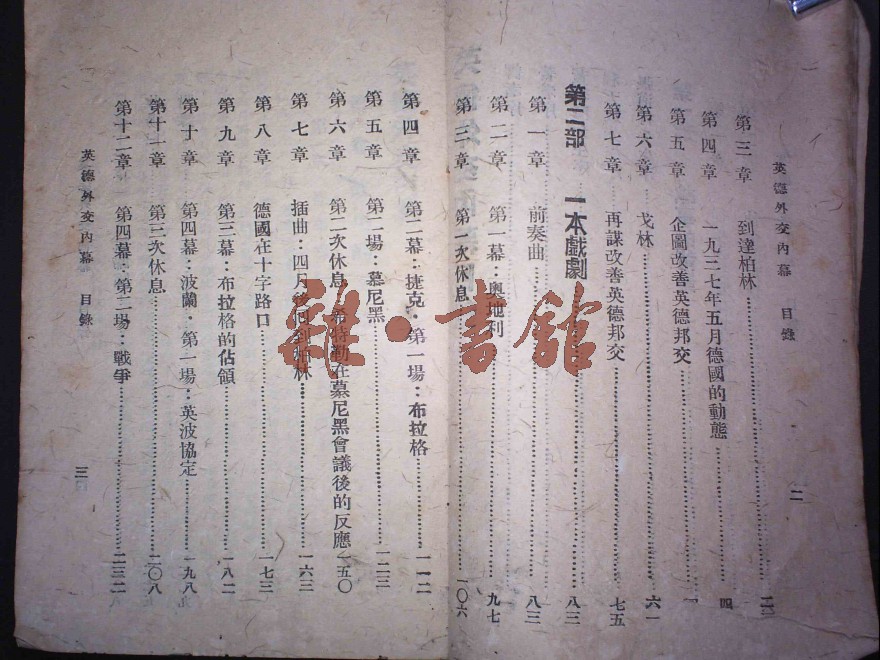 英德外交內幕 目錄 二
第三章 到達柏林
第四章 一九三七年五月德國的動態 四
第五章 企圖改善英德邦交
第六章 戈林 六一
第七章 再謀改善英德邦交 七五
第二部 一本戲劇 八三
第一章 前奏曲 八三
第二章 第一幕：奧地利 九七
第三章 第一次休息 一〇六
第四章 第二幕：捷克·第一場：布拉格 一一二
第五章 第二場：慕尼黑 一二三
第六章 第二次休息：希特勒在慕尼黑會議後的反應 一五〇
第七章 插曲：四月後回到柏林 一六三
第八章 德國在十字路口 一七三
第九章 第三幕：布拉格的佔領 一八二
第十章 第四幕：波蘭·第一場：英波協定 一九八
第十一章 第三次休息 二〇八
第十二章 第四幕：第二場：戰爭 二三二
英德外交內幕 目錄 三
雜·書館